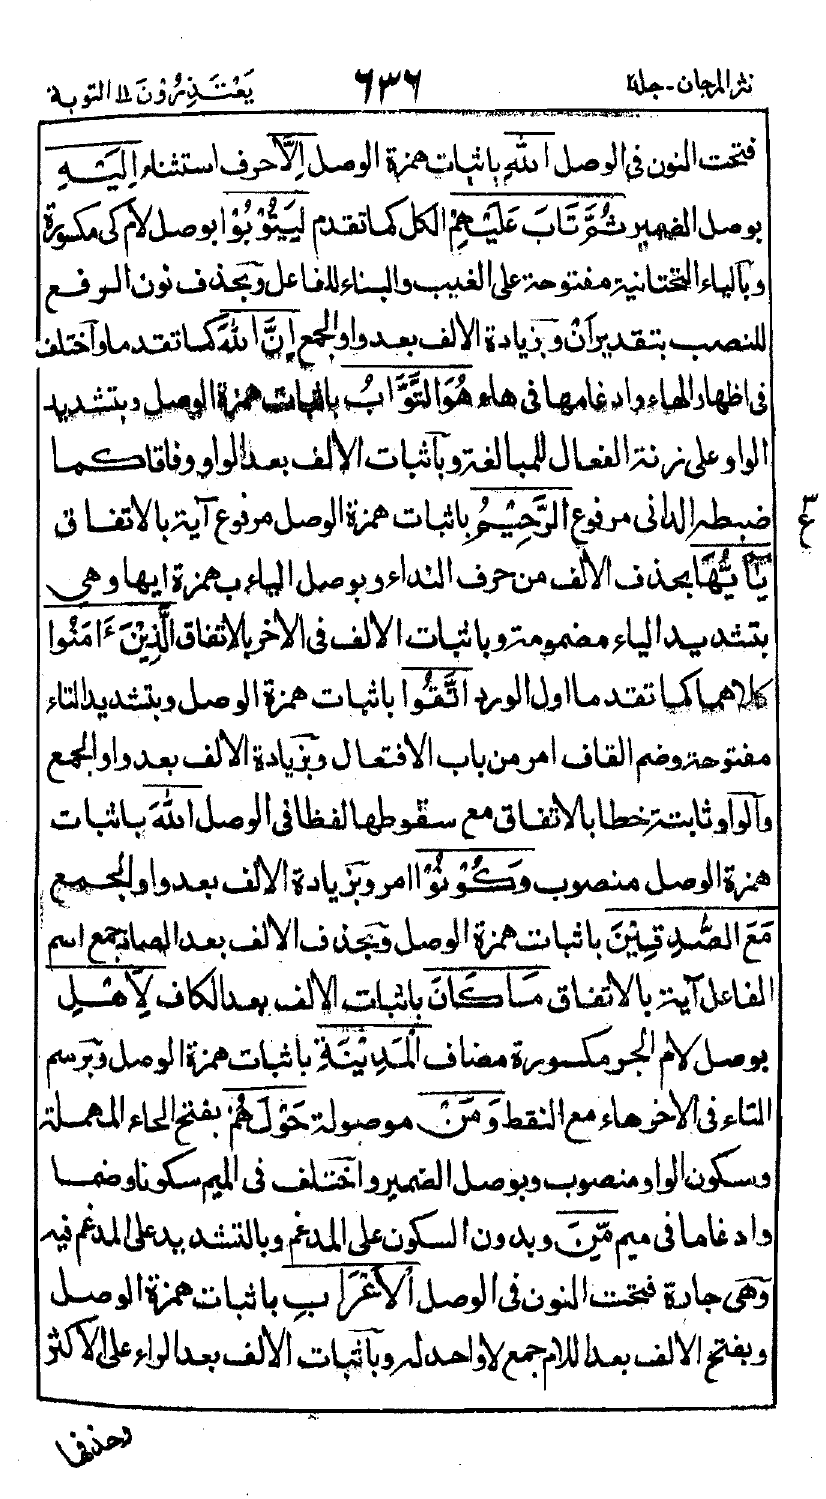 نثر المرجان - جلد ٢ ٦٣٦ يَعْتَذِرُوْنَ ١١ التوبة
فتحت النون فى الوصل اللهِ باثبات همزة الوصل اِلَّا حرف استثناء اِلَيْهِ
بوصل الضمير ثُمَّ تَابَ عَلَيْهِمْ الكل كما تقدم لِيَتُوْبُوْا بوصل لام كى مكسورة
وبالياء التحتانية مفتوحة على الغيب والبناء للفاعل وبحذف نون الرفع
للنصب بتقدير اَنْ وبزيادة الالف بعد واو الجمع اِنَّ اللهَ كما تقدما واختلف
فى اظهار الهاء وادغامها فى هاء هُوَ التَّوَّابُ باثبات همزة الوصل وبتشديد
الواو على زنة الفعال للمبالغة وباثبات الالف بعد الواو وفاقا كما
ضبطه الدانى مرفوع الرَّحِيْمُ باثبات همزة الوصل مرفوع آية بالاتفاق
ع
يٰٓاَيُّهَا بحذف الالف من حرف النداء وبوصل الياء بهمزة ايها وهى
بتشديد الياء مضمومة وباثبات الالف فى الاخر بالاتفاق الَّذِيْنَ ءَامَنُوْا
كلاهما كما تقدما اول الورد اتَّقُوا باثبات همزة الوصل وبتشديد التاء
مفتوحة وضم القاف امر من باب الافتعال وبزيادة الالف بعد واو الجمع
والواو ثابتة خطا بالاتفاق مع سقوطها لفظا فى الوصل اللهَ باثبات
همزة الوصل منصوب وَكُوْنُوْا امر وبزيادة الالف بعد واو الجمع
مَعَ الصّٰدِقِيْنَ باثبات همزة الوصل وبحذف الالف بعد الصاد جمع اسم
الفاعل آية بالاتفاق مَا كَانَ باثبات الالف بعد الكاف لِاَهْلِ
بوصل لام الجر مكسورة مضاف الْمَدِيْنَةِ باثبات همزة الوصل وبرسم
التاء فى الاخر هاء مع النقط وَمَنْ موصولة حَوْلَهُمْ بفتح الحاء المهملة
وسكون الواو منصوب وبوصل الضمير واختلف فى الميم سكونا وضما
وادغاما فى ميم مِّنَ وبدون السكون على المدغم وبالتشديد على المدغم فيه
وهى جارة فتحت النون فى الوصل الْاَعْرَابِ باثبات همزة الوصل
وبفتح الالف بعد اللام جمع لا واحد له وباثبات الالف بعد الراء على الاكثر
وحذفها